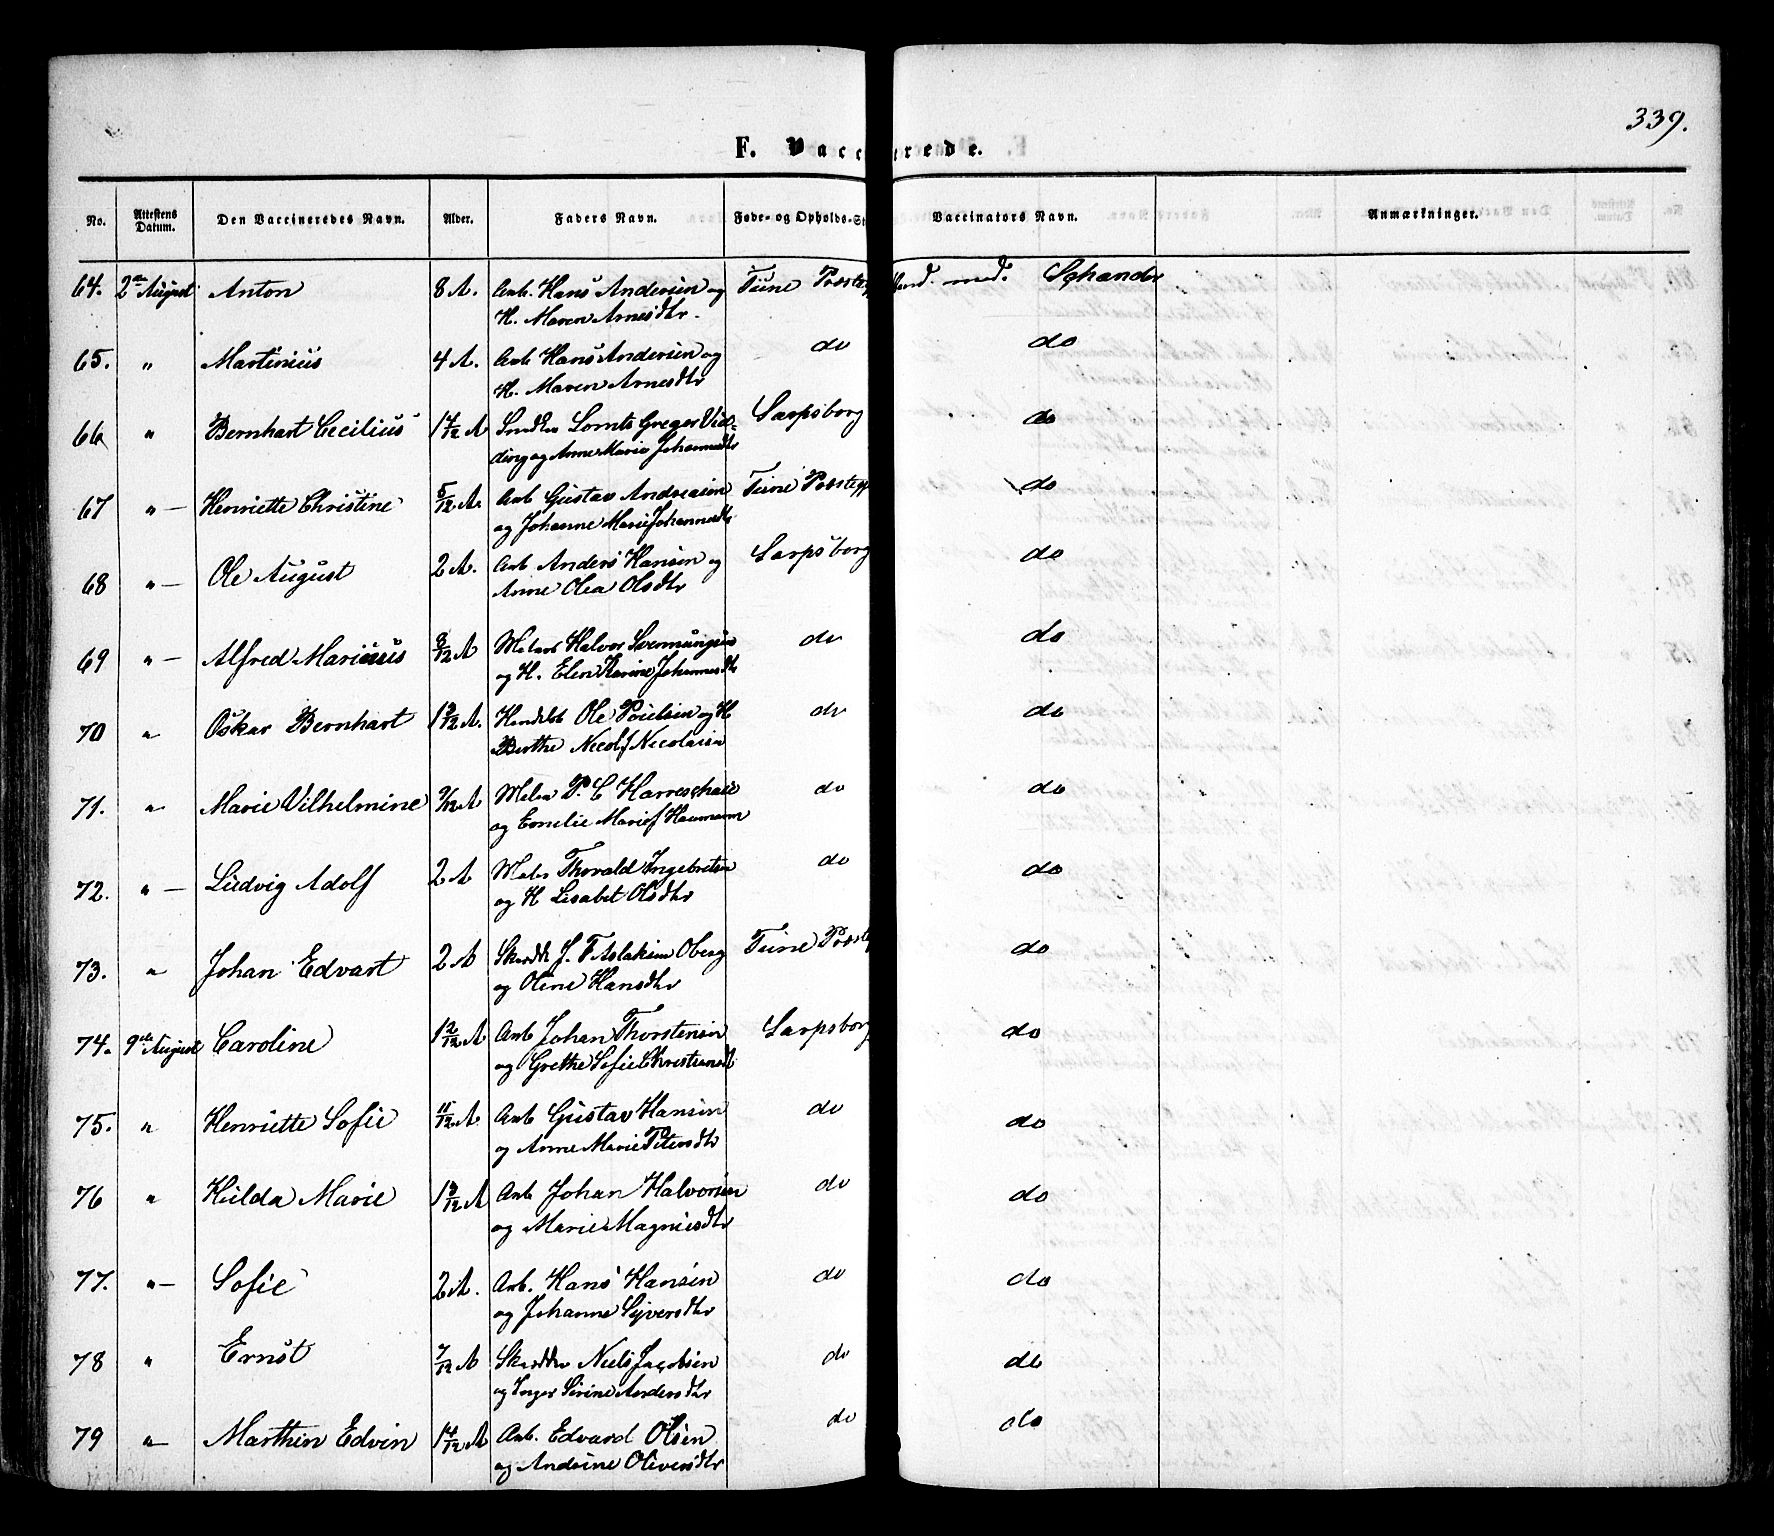 339.
F. Vacc rede.
No. Attestens Datum. Den Vaccineredes Navn. Alder. Faders Navn. Føde- og Opholds-St Vaccinators Navn. Anmærkninger.
64. 2den August Anton 8 A. Arb. Hans Andersen og Tune Præstegj Cand. med. Schander
H. Maren Arnesdtr.
65. " Martinius 4 A. Arb Hans Andersen og do do
H. Maren Arnesdtr
66 " Bernhart Cecilius 1 7/12 A Lomts Greger Vid- Sarpsborg do
ding og Anne Marie Johannesdtr
67 " — Henriette Christine 5/12 A. Arb Gustav Andreasen Tune Præstegj do
og Johanne Marie Johannesdtr
68 " — Ole August 2 A. Arb Anders Hansen og Sarpsborg do
Anne Olea Olsdtr
69 " — Alfred Marinius 8/12 A Halvor Svenungsen do do
og H. Elen Karine Johannesdtr
70 " Oskar Bernhart 1 9/12 A. Ole Poulsen og H do do
Berthe Nicolaisen
71. " Marie Vilhelmine 9/12 A P. C do do
og Emelie Marie f Haumann
72. " — Ludvig Adolf 2 A Thorvald Ingebretsen do do
og H Lisabet Olsdtr
73. " Johan Edvart 2 A Skrædder J. F Aslaksen Oberg Tune Præsteg do
og Oline Hansdtr
74. 9de August Caroline 1 2/12 A Arb Johan Thorstensen Sarpsborg do
og Grethe Sofie Christiansdt
75. " Henriette Sofie 11/12 A Arb Gustav Hansen do do
og Anne Marie Petersdtr
76 " Hulda Marie 1 9/12 A Arb Johan Halvorsen do do
og Marie Magnusdtr
77. " — Sofie 2 A. Arb. Hans Hansen do do
og Johanne Syversdtr
78 " Ernst 7/12 A Skrædder Niels Jacobsen do do
og Inger Sirine Andersdtr
79 " — Marthin Edvin 1 4/12 A Arb. Edvard Olsen do do
og Andrine Oliversdtr